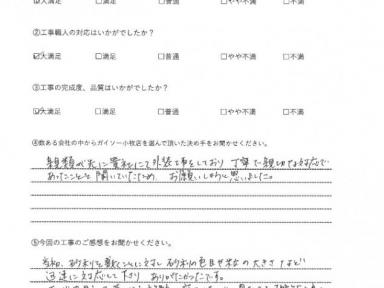 ☑大満足 □満足 □普通 □やや不満 □不満
②工事職人の対応はいかがでしたか？
☑大満足 □満足 □普通 □やや不満 □不満
③工事の完成度、品質はいかがですか？
☑大満足 □満足 □普通 □やや不満 □不満
④数ある会社の中からガイソー小牧店を選んで頂いた決め手をお聞かせください。
親類が先に貴社にて外装工事をしており丁寧で親切な対応で
あったことを聞いていたため、お願いしようと思いました。
⑤今回の工事のご感想をお聞かせください。
当初、砂利を敷くへんに対し砂利の色目や大きさなど
迅速に対応して下さりありがたかったです。